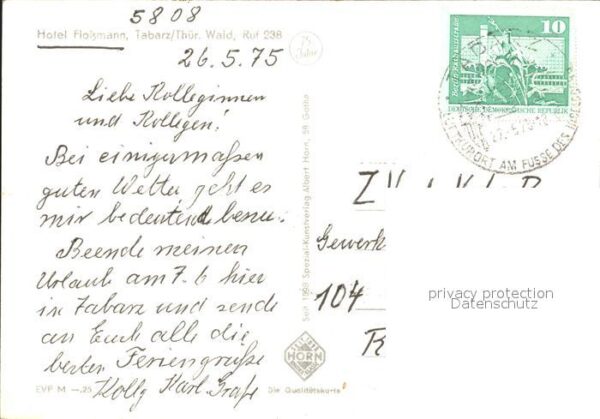 5808
Hotel Floßmann, Tabarz/Thür. Wald, Ruf 238
26.5.75
Liebe Kolleginnen
und Kollegen!
Bei einigermaßen
guten Wetter geht es
mir bedeutend besser.
Beende meinen
Urlaub am 7.6 hier
in Tabarz und sende
an Euch alle die
besten Feriengrüße
Kollg Karl
EVP M —.25
Die Qualitätskarte
Seit 1908 Spezial-Kunstverlag Albert Horn, 58 Gotha
HORN
10
DEUTSCHE DEMOKRATISCHE REPUBLIK
27.5.75
AM FUSSE DES
Gewerk
104
privacy protection
Datenschutz